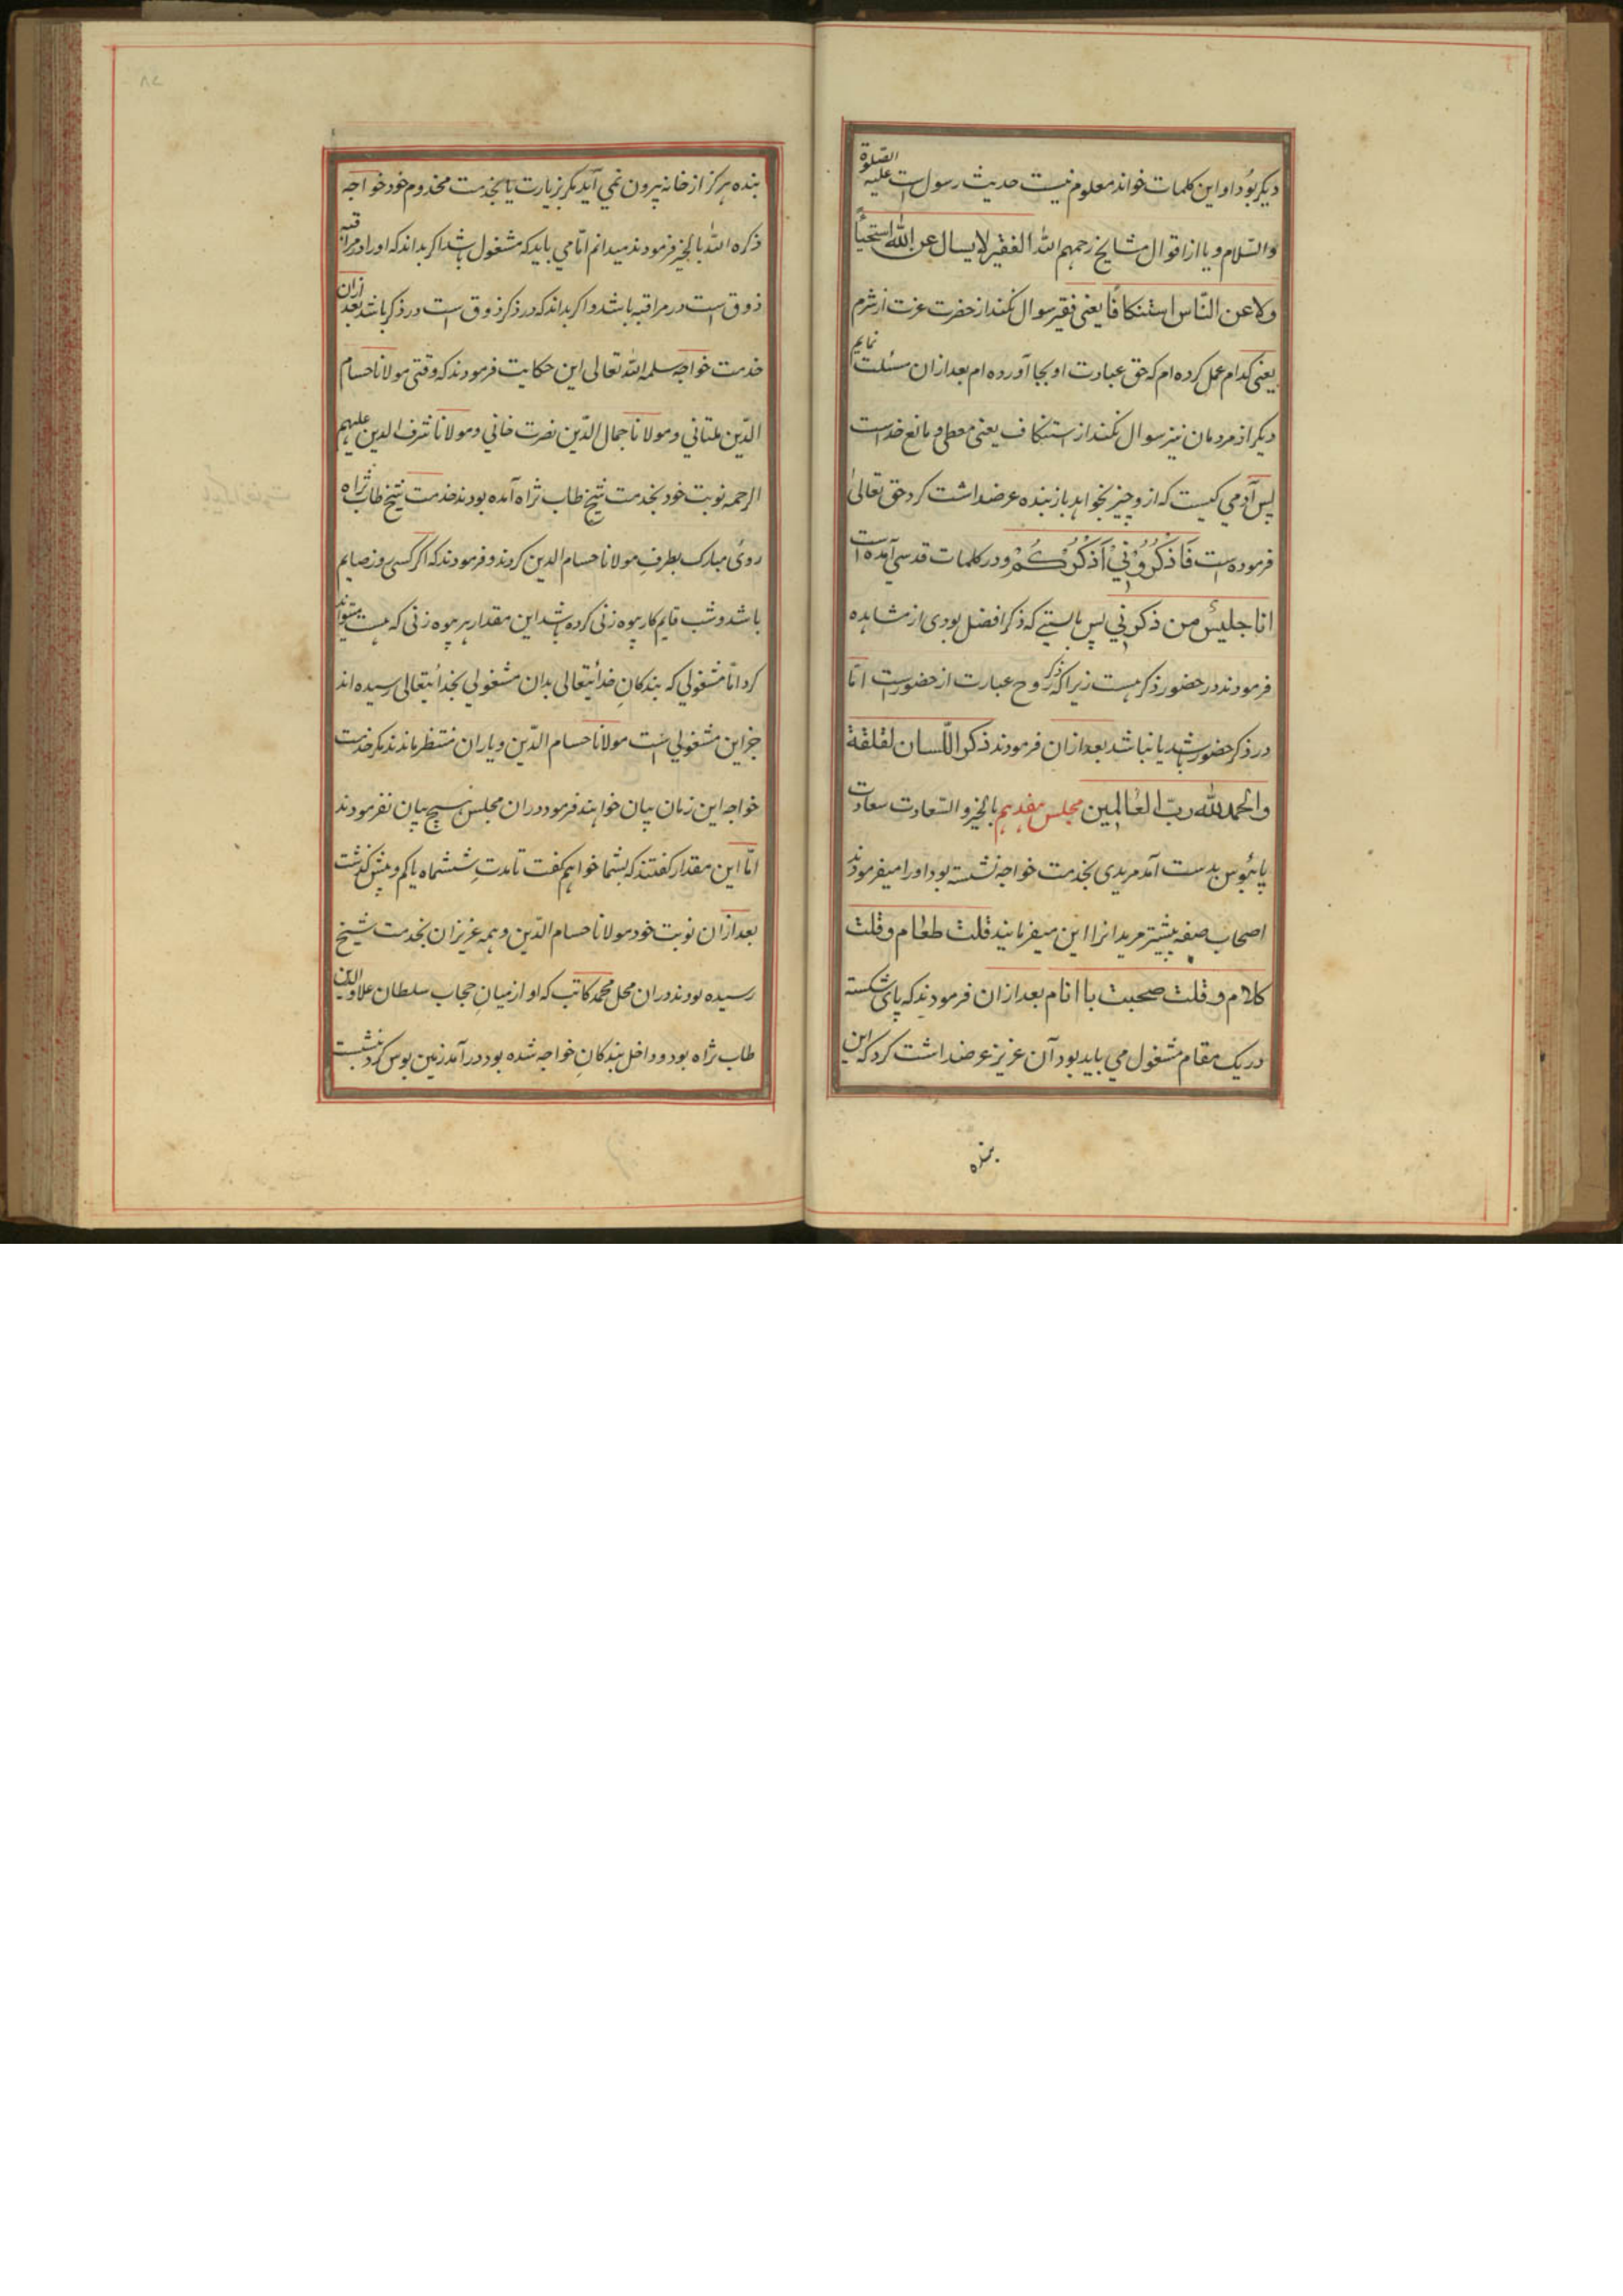 دیکر بود او این کلمات خواند معلوم نیست حدیث رسول است علیه الصلوة
والسّلام و یا از اقوال مشایخ رحمهم الله الفقیر لا یسال عن الله استحیاً
ولا عن النّاس استنکافًا یعنی فقیر سوال نکند از حضرت عزت از شرم
یعنی کدام عمل کرده ام که حق عبادت او بجا آورده ام بعد ازان مسئلت نمایم
دیکر از مردمان نیز سوال نکند از استنکاف یعنی معطی و مانع خداست
پس آدمی کیست که ازو چیز بخواهد باز بنده عرضداشت کرد حق تعالیٰ
فرموده است فَاذْكُرُوْنِيْ اَذْكُرْكُمْ و در کلمات قدسی آمده است
انا جلیسُ من ذکرنی پس بایستی که ذکر افضل بودی از مشاهده
فرمودند در حضور ذکر هست زیرا که ذکر روح عبارت از حضورست امّا
در ذکر حضور باشد یا نباشد بعد ازان فرمودند ذکر اللّسان لقلقة
والحمد لله ربّ العٰالمین مجلس هفدهم بالخیر و السّعادت سعادت
پائبوس بدست آمد مریدی بخدمت خواجه نشسته بود او را میفرمودند
اصحاب صفه بیشتر مریدانرا این میفرمانید قلت طعام و قلت
کلام و قلت صحبت با انام بعد ازان فرمودند که پای شکسته
در یک مقام مشغول می باید بود آن عزیز عرضداشت کرد که این
بنده
بنده هرکز از خانه بیرون نمی آید مکر بزیارت یا بخدمت مخدوم خود خواجه
ذکره الله بالخیر فرمودند میدانم امّا می باید که مشغول باشد اکر بداند که او را در مراقبه
ذوق است در مراقبه باشد و اکر بداند که در ذکر ذوق است در ذکر باشد بعد ازان
خدمت خواجه سلمه الله تعالی این حکایت فرمودند که وقتی مولانا حسام
الدّین ملتانی و مولانا جمال الدّین نصرت خانی و مولانا شرف الدین علیهم
الرحمه نوبت خود بخدمت شیخ طاب ثراه آمده بودند خدمت شیخ طاب ثراه
روی مبارک بطرف مولانا حسام الدین کردند و فرمودند که اکر کسی روز صایم
باشد و شب قایم کار بیوه زنی کرده باشد این مقدار هر بیوه زنی که هست میتواند
کرد امّا مشغولی که بندکانِ خدائیتعالی بدان مشغولی بخدائیتعالی رسیده اند
جز این مشغولی است مولانا حسام الدّین و یاران منتظر ماندند مکر خدمت
خواجه این زمان بیان خواهند فرمود دران مجلس هیچ بیان نفرمودند
امّا این مقدار کفتند که بشما خواهم کفت تا مدتِ ششماه یا کم و بیش کذشت
بعد ازان نوبت خود مولانا حسام الدّین و همه عزیزان بخدمت شیخ
رسیده بودند دران محل محمد کاتب که او از میانِ حجاب سلطان علاوالدین
طاب ثراه بود و داخل بندکانِ خواجه شده بود در آمد زمین بوس کرد بنشست